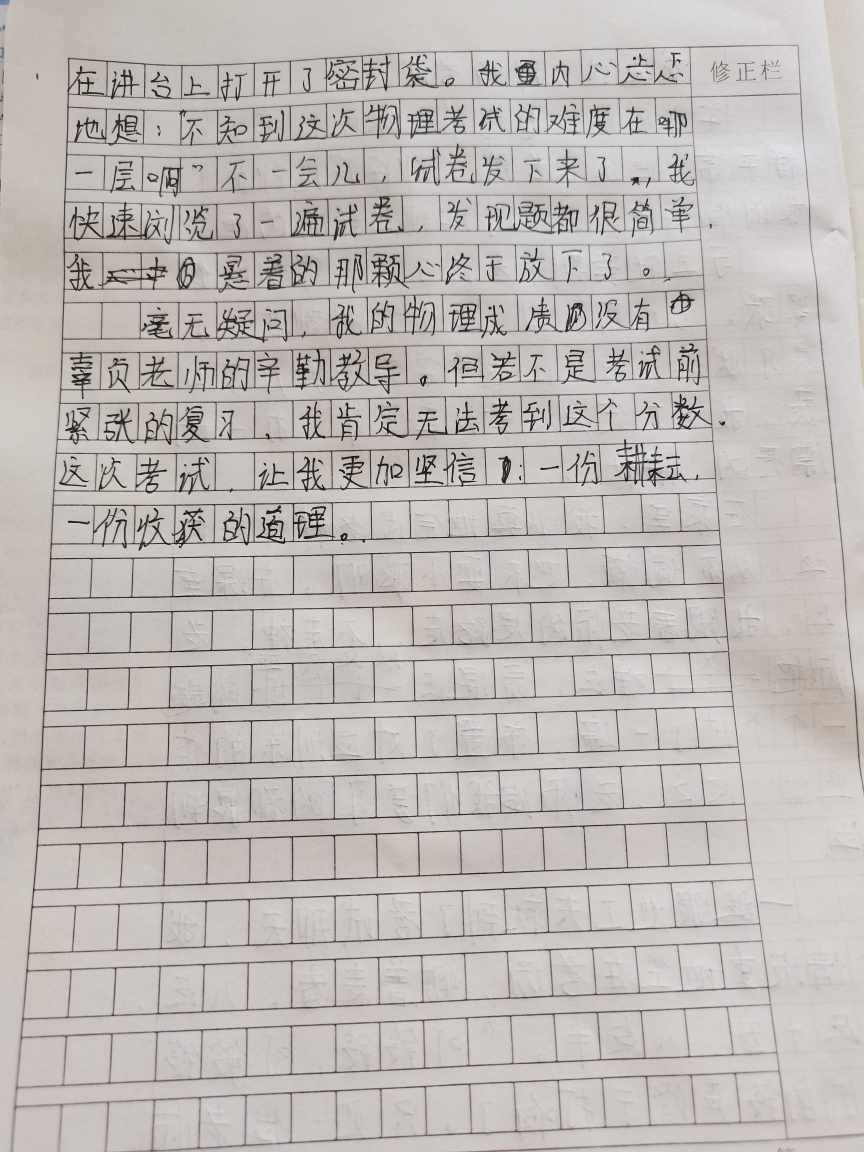 在讲台上打开了密封袋。我内心忐忑
修正栏
地想：“不知到这次物理考试的难度在哪
一层啊”不一会儿，试卷发下来了，我
快速浏览了一遍试卷，发现题都很简单，
我悬着的那颗心终于放下了。
毫无疑问，我的物理成绩没有
辜负老师的辛勤教导。但若不是考试前
紧张的复习，我肯定无法考到这个分数。
这次考试，让我更加坚信：一份耕耘，
一份收获的道理。